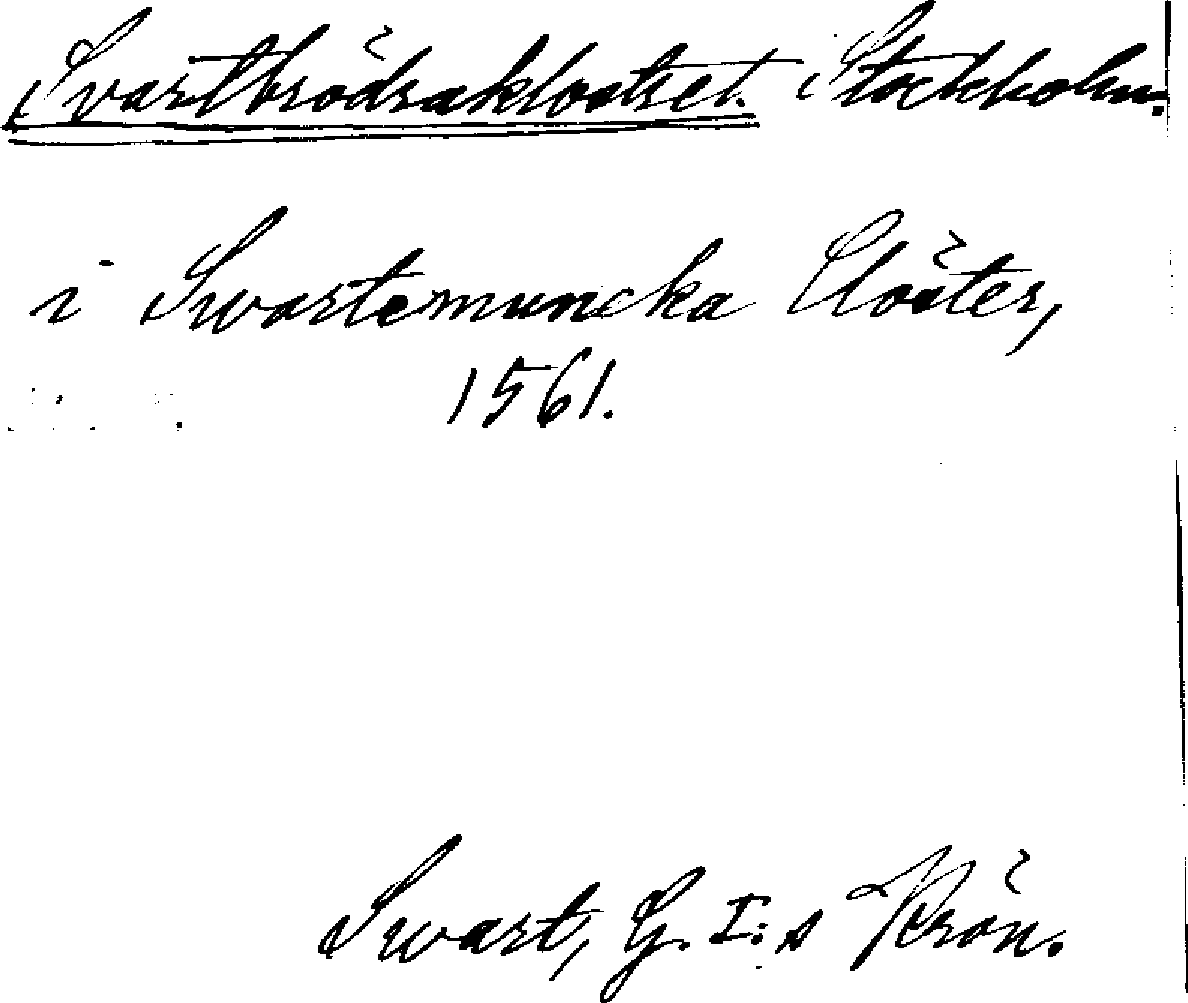 Svartbrödraklostret. Stockholm.
i Swartemuncka Clöster,
1561.
Swart, G. I:s Krön.